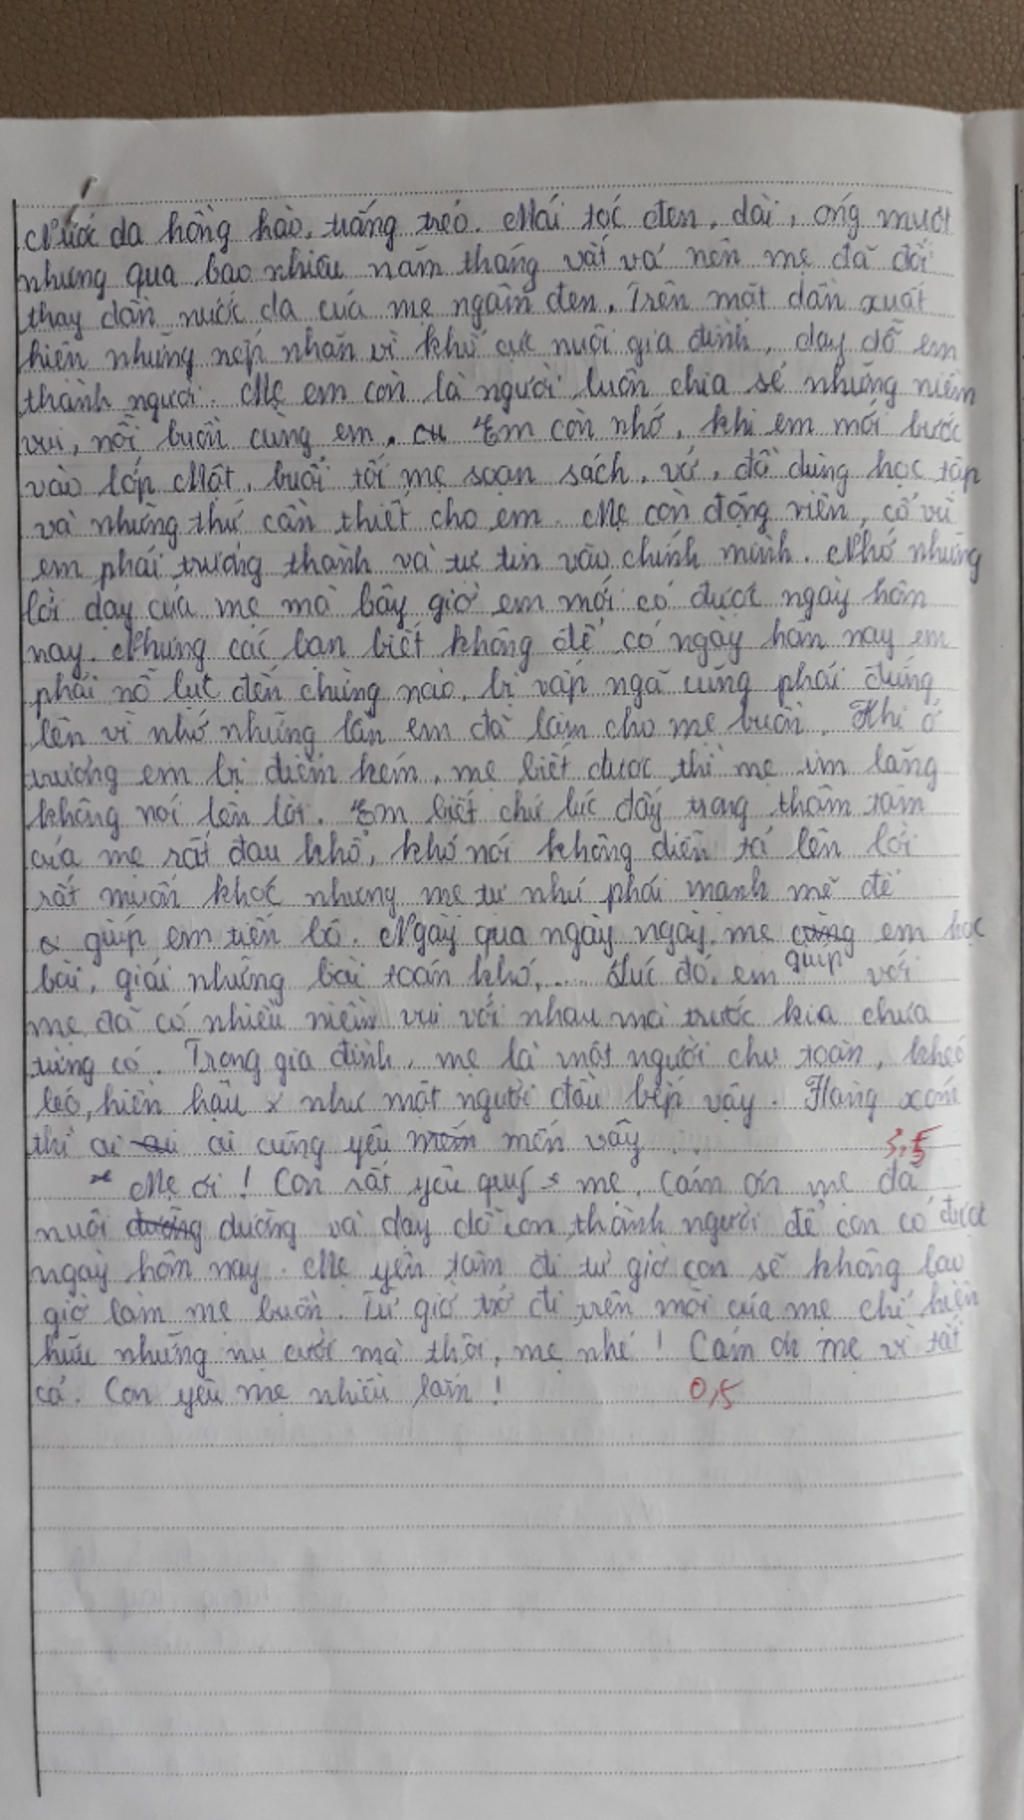 Nước da hồng hào, trắng trẻo. Mái tóc đen, dài, óng mượt
nhưng qua bao nhiêu năm tháng vất vả nên mẹ đã đổi
thay dần nước da của mẹ ngăm đen. Trên mặt dần xuất
hiện những nếp nhăn vì khổ cực nuôi gia đình, dạy dỗ em
thành người. Mẹ em còn là người luôn chia sẻ những niềm
vui, nỗi buồn cùng em. Em còn nhớ, khi em mới bước
vào lớp Một, buổi tối mẹ soạn sách, vở, đồ dùng học tập
và những thứ cần thiết cho em. Mẹ còn động viên, cổ vũ
em phải trưởng thành và tự tin vào chính mình. Nhớ những
lời dạy của mẹ mà bây giờ em mới có được ngày hôm
nay. Nhưng các bạn biết không để có ngày hôm nay em
phải nỗ lực đến chừng nào, bị vấp ngã cũng phải đứng
lên vì nhớ những lần em đã làm cho mẹ buồn. Khi ở
trường em bị điểm kém, mẹ biết được thì mẹ im lặng
không nói lên lời. Em biết chứ lúc đấy trong thâm tâm
của mẹ rất đau khổ, khó nói không diễn tả lên lời
rất muốn khóc nhưng mẹ tự nhủ phải mạnh mẽ để
giúp em tiến bộ. Ngày qua ngày ngày, mẹ cùng em học
bài, giải những bài toán khó,.... Lúc đó, em giúp với
mẹ đã có nhiều niềm vui với nhau mà trước kia chưa
từng có. Trong gia đình, mẹ là một người chu toàn, khéo
léo, hiền hậu như một người đầu bếp vậy. Hàng xóm
thì ai ai ai cũng yêu mếm mến vậy. 3,5
Mẹ ơi! Con rất yêu quý mẹ. Cảm ơn mẹ đã
nuôi dưỡng dưỡng và dạy dỗ con thành người để con có được
ngày hôm nay. Mẹ yên tâm đi từ giờ con sẽ không bao
giờ làm mẹ buồn. Từ giờ trở đi trên môi của mẹ chỉ hiện
hữu những nụ cười mà thôi, mẹ nhé! Cảm ơn mẹ vì tất
cả. Con yêu mẹ nhiều lắm! 0,5